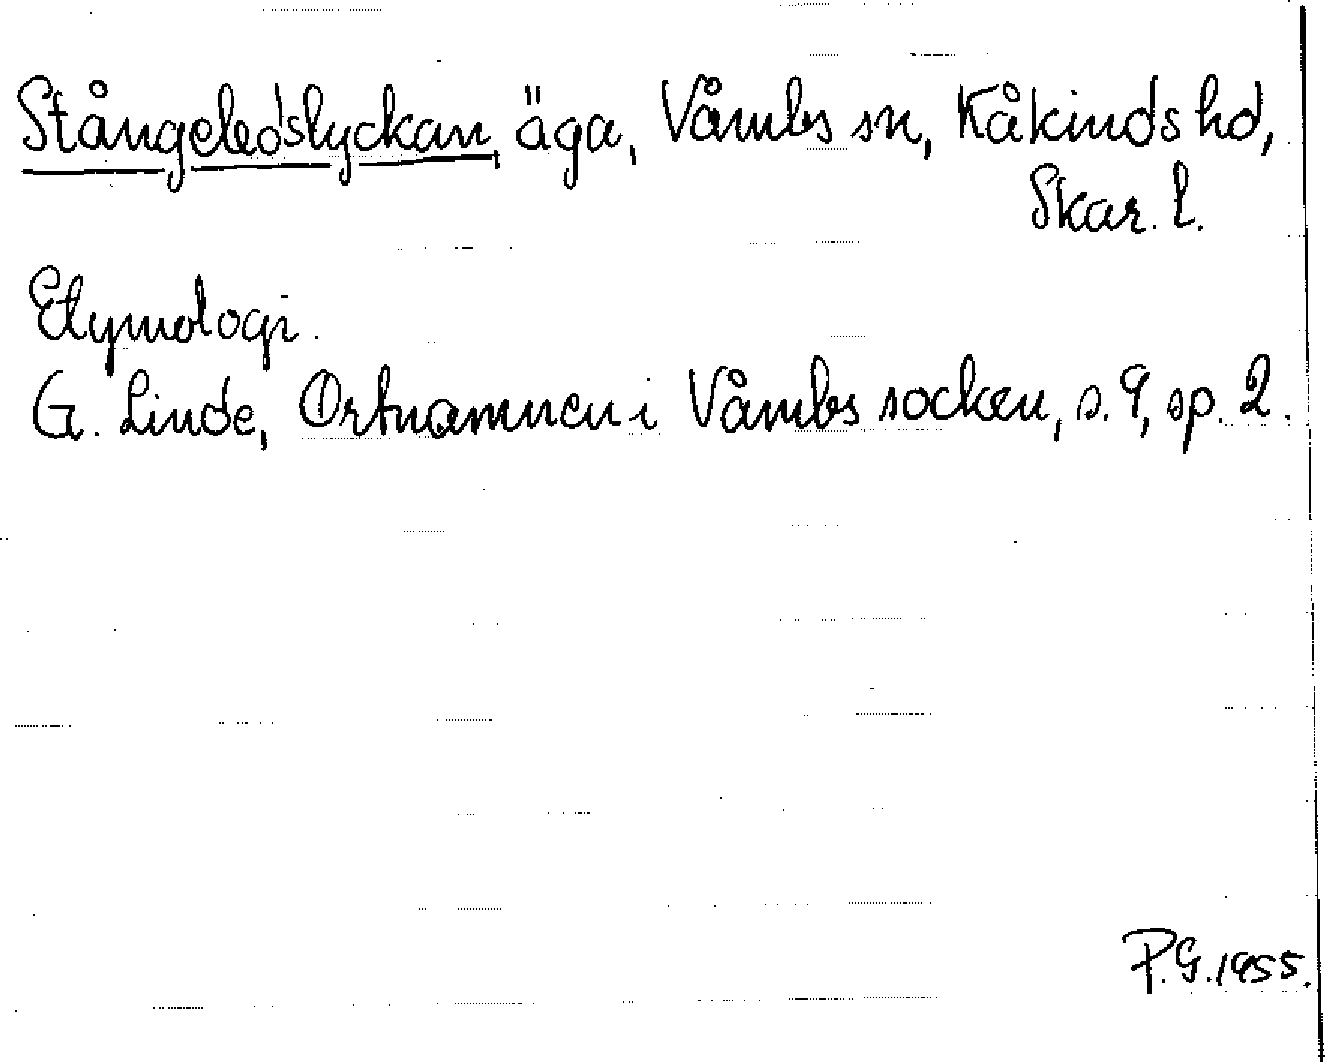 Stångeledslyckan, äga, Våmbs sn, Kåkinds hd,
Skar. l.
Etymologi.
G. Linde, Ortnamnen i Våmbs socken, s. 9, sp. 2.
P.G. 1955.